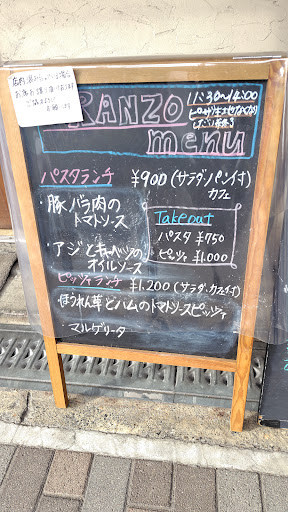 PRANZO
menu
11:30~14:00
ピザ生地なくなり
しだい終了
パスタランチ ¥900(サラダ・パン付)
カフェ
・豚バラ肉の
トマトソース
・アジとキャベツの
オイルソース
Takeout
パスタ ¥750
ピッツィ ¥1.000
ピッツィランチ ¥1.200(サラダ・カフェ付)
ほうれん草とハムのトマトソースピッツィ
・マルゲリータ